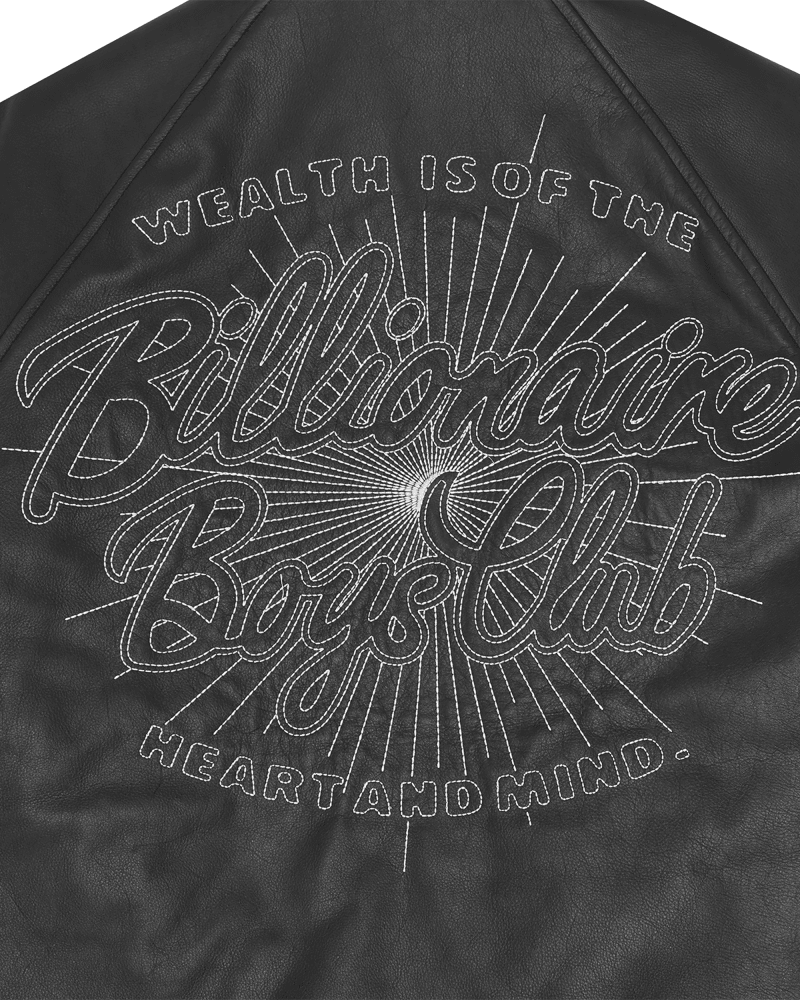 WEALTH IS OF THE
Billionaire
Boys Club
HEART AND MIND.